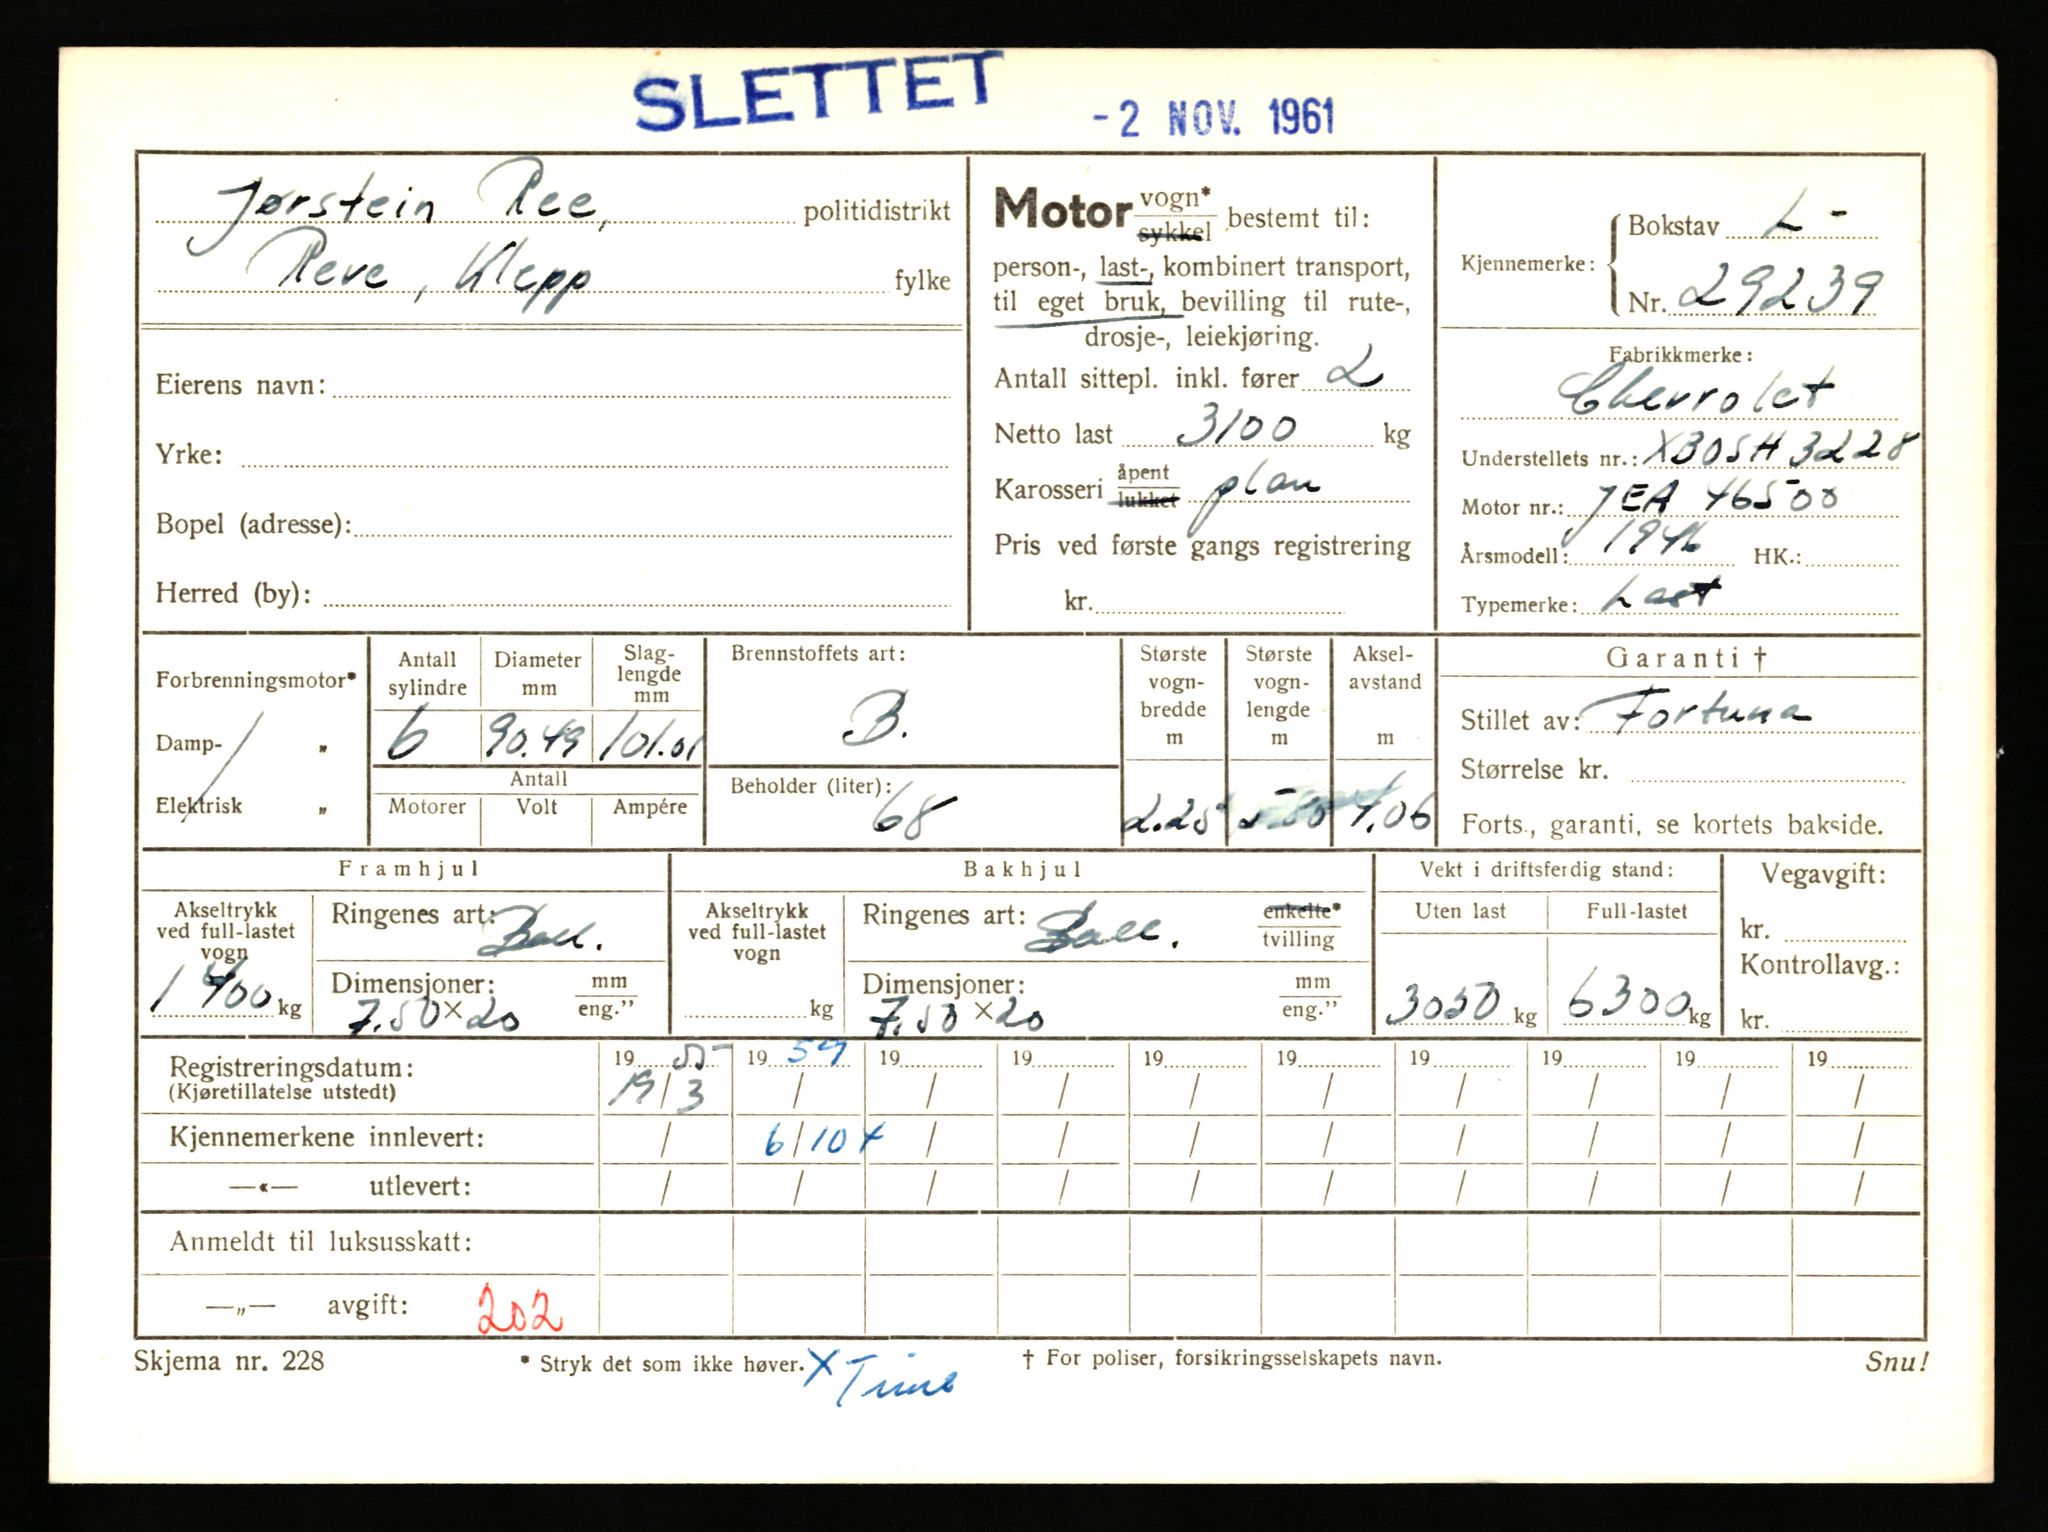 SLETTET
-2 NOV. 1961
Jørstein Ree, politidistrikt
Reve, Klepp fylke
Eierens navn:
Yrke:
Bopel (adresse):
Herred (by):
Motor vogn* / sykkel bestemt til:
person-, last-, kombinert transport,
til eget bruk, bevilling til rute-,
drosje-, leiekjøring.
Antall sittepl. inkl. fører 2
Netto last 3100 kg
Karosseri åpent / lukket plan
Pris ved første gangs registrering
kr.
Kjennemerke: Bokstav L-
Nr. 29239
Fabrikkmerke:
Chevrolet
Understellets nr.: XBOSH3228
Motor nr.: JEA 46500
Årsmodell: 1946 HK.:
Typemerke: Last
Forbrenningsmotor*
Damp- "
Elektrisk "
Antall sylindre
6
Diameter mm
90.49
Slag-lengde mm
101.01
Antall
Motorer Volt Ampére
Brennstoffets art:
B.
Beholder (liter):
68
Største vogn-bredde m
2.25
Største vogn-lengde m
Aksel-avstand m
4.06
Garanti †
Stillet av: Fortuna
Størrelse kr.
Forts., garanti, se kortets bakside.
Framhjul
Akseltrykk ved full-lastet vogn
1400 kg
Ringenes art: Ball.
Dimensjoner: mm / eng."
7.50 x 20
Bakhjul
Akseltrykk ved full-lastet vogn
kg
Ringenes art: Ball. enkelte* / tvilling
Dimensjoner: mm / eng."
7.50 x 20
Vekt i driftsferdig stand:
Uten last Full-lastet
3050 kg 6300 kg
Vegavgift:
kr.
Kontrollavg.:
kr.
Registreringsdatum: 19 55 19 59 19 19 19 19 19 19 19 19
(Kjøretillatelse utstedt) 19/3 / / / / / / / / /
Kjennemerkene innlevert: / 6/10 x / / / / / / / /
—«— utlevert: / / / / / / / / / /
Anmeldt til luksusskatt:
—„— avgift: 202
Skjema nr. 228 * Stryk det som ikke høver. X Time † For poliser, forsikringsselskapets navn. Snu!